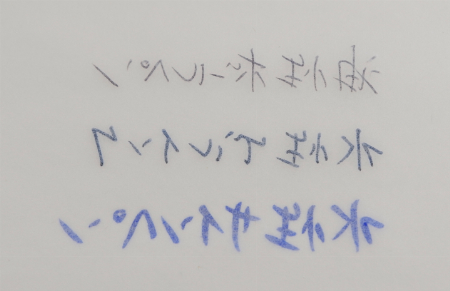 油性ボールペン
水性ゲルインク
水性サインペン